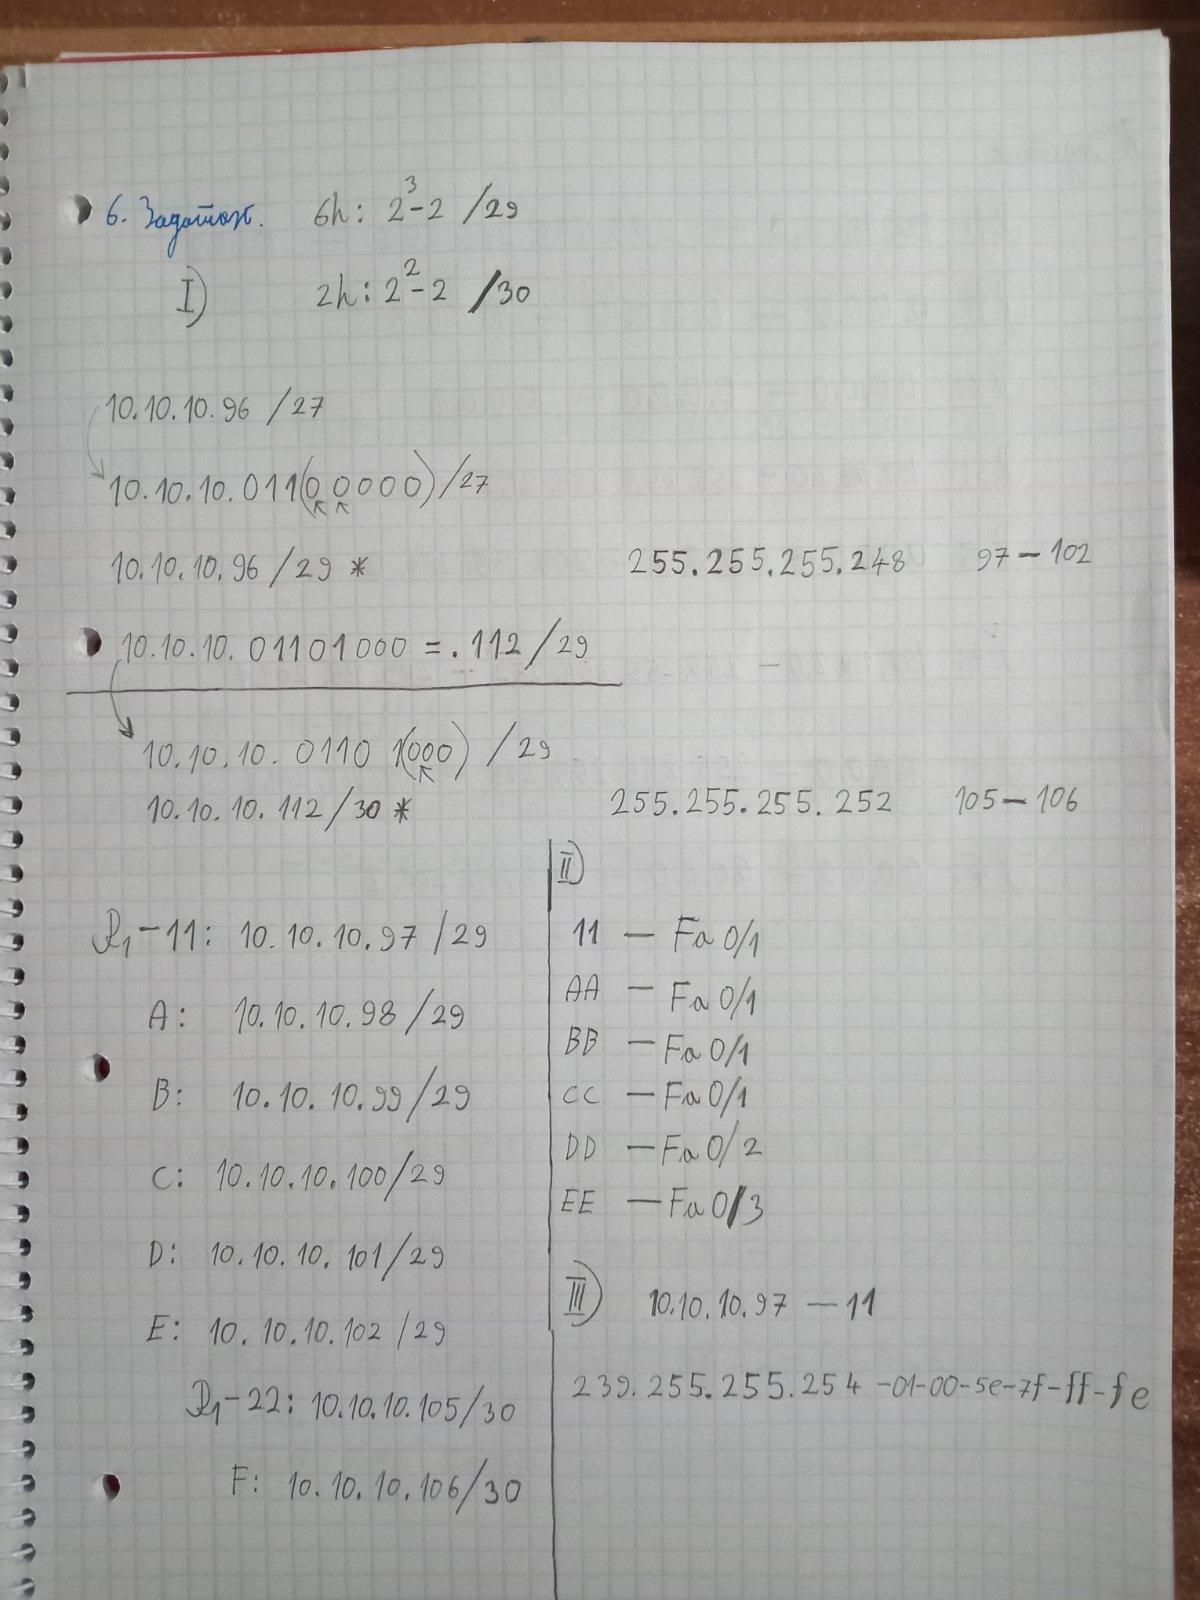 6. Задатак. 6h: 2³-2 /29
I) 2h: 2²-2 /30
10.10.10.96 /27
10.10.10.011(00000)/27
10.10.10.96 /29 * 255.255.255.248 97-102
10.10.10.01101000 = .112/29
10.10.10.01101(000) /29
10.10.10.112/30 * 255.255.255.252 105-106
R₁-11: 10.10.10.97/29
A: 10.10.10.98/29
B: 10.10.10.99/29
C: 10.10.10.100/29
D: 10.10.10.101/29
E: 10.10.10.102/29
R₁-22: 10.10.10.105/30
F: 10.10.10.106/30
II)
11 - Fa 0/1
AA - Fa 0/1
BB - Fa 0/1
CC - Fa 0/1
DD - Fa 0/2
EE - Fa 0/3
III) 10.10.10.97 - 11
239.255.255.254 -01-00-5e-7f-ff-fe